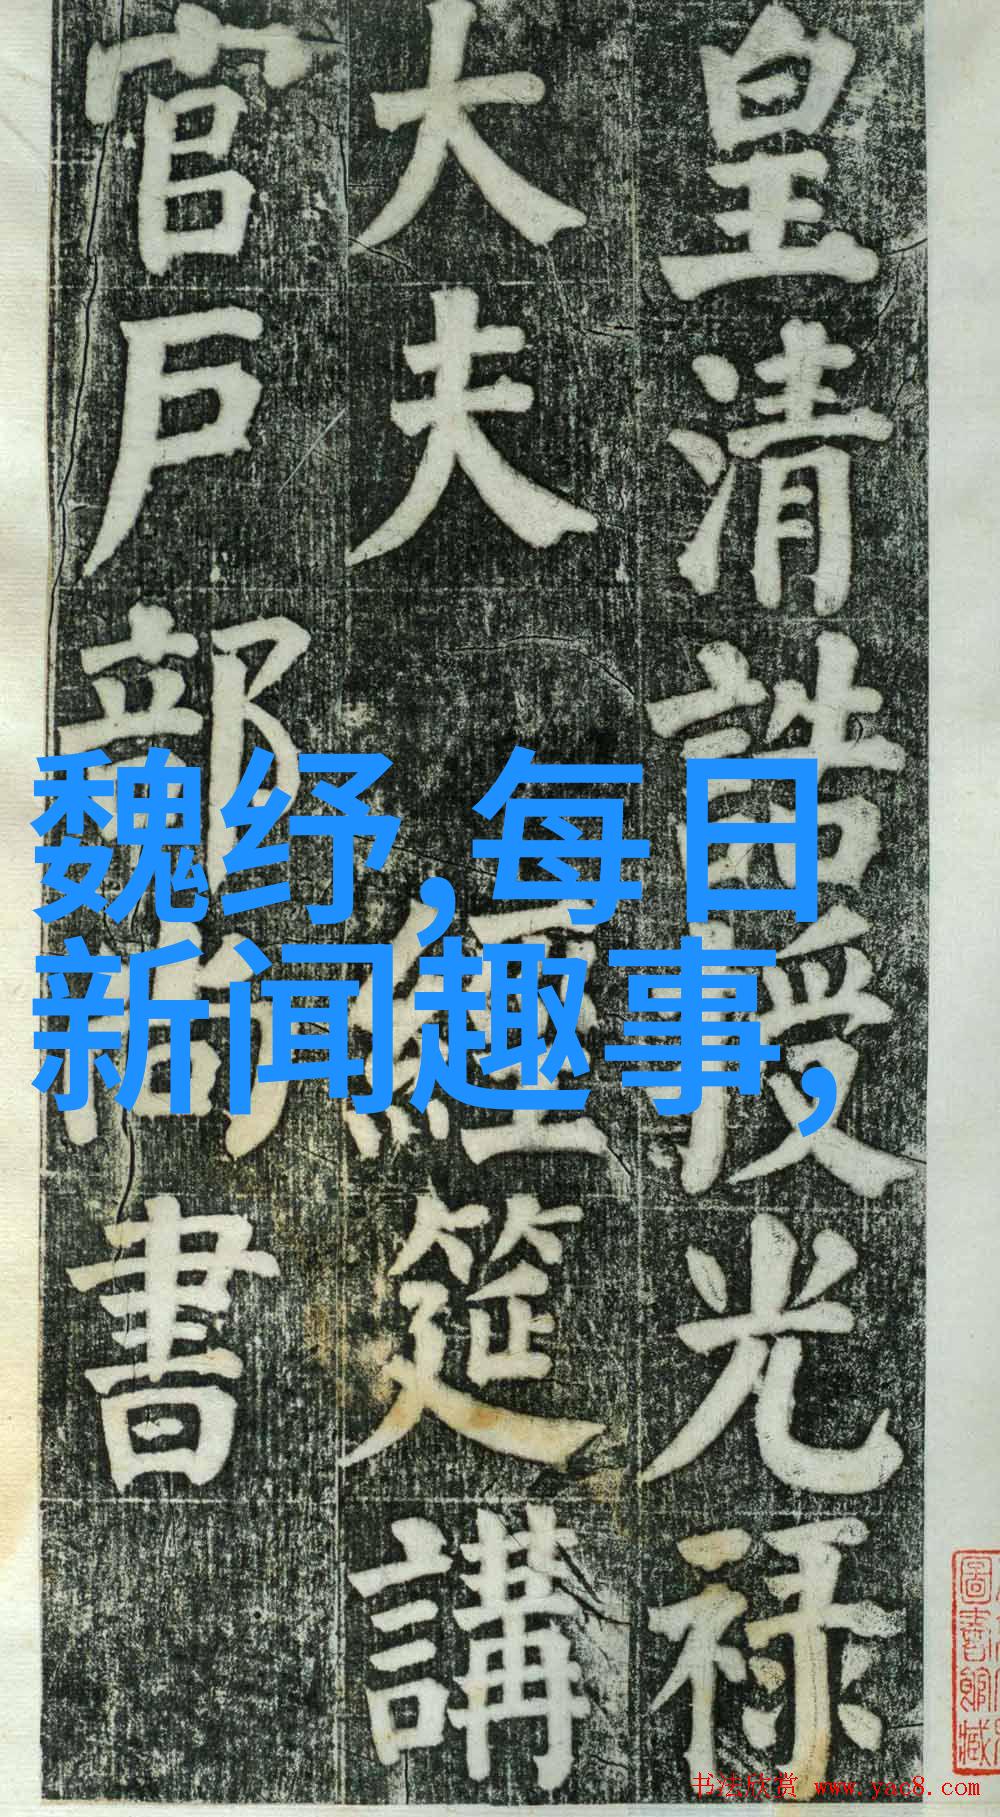 皇清誥授光祿
大夫 經筵講
官戶部尚書
魏纾,每日
新闻趣事,
圖書館藏
书法欣赏 www.yac8.com